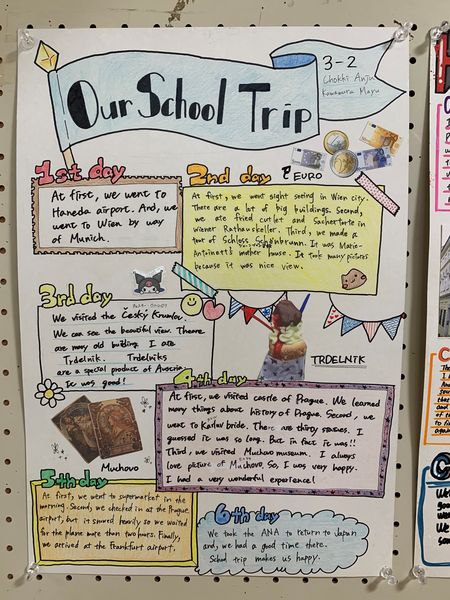 3-2
Chokhi Anju
Kawamura Mayu
Our School Trip
EURO
1st day
At first, we went to
Haneda airport. And, we
went to Wien by way
of Munich.
2nd day
At first, we went sight seeing in Wien city.
There are a lot of big buildings. Second,
we ate fried cutlet and Sachertorte in
wiener Rathauskeller. Third, we made a
tour of Schloss Schönbrunn. It was Marie-
Antoinett's mother house. It took many pictures
because it was nice view.
3rd day
We visited the Český Krumlov.
We can see the beautiful view. There
are many old building. I ate
Trdelnik. Trdelniks
are a special product of
It was good!
TRDELNIK
Muchovo
4th day
At first, we visited castle of Prague. We learned
many things about history of Prague. Second, we
went to Karluv bride. There are thirty statues. I
guessed it was so long. But in fact it was!!
Third, we visited Muchovo museum. I always
love picture of Muchovo. So, I was very happy.
I had a very wonderful experience!
5th day
At first, we went to supermarket in the
morning. Second, we checked in at the Prague
airport, but it snowed heavily so we waited
for the plane more than two hours. Finally,
we arrived at the Frankfurt airport.
6th day
We took the ANA to return to Japan
and, we had a good time there.
School trip makes us happy.